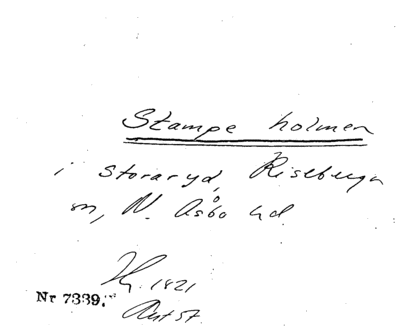 Stampe holmen
i Storaryd, Riseberga
sn, N. Åsbo hd.
Hg. 1821
Nr 7339.
Avt st.